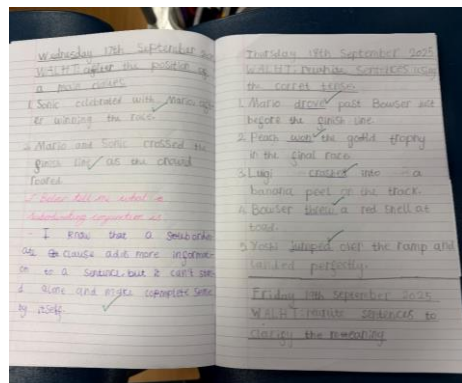 Wednesday 17th September 2025
WALHT: the position of
a main clause
1. Sonic celebrated with Mario aft-
er winning the race.
2. Mario and Sonic crossed the
finish line as the crowd
roared.
tell me what a
Subordinating conjunction is
- I know that a subordin
clause adds more informati-
on to a sentence but it can't stan-
d alone and make complete sense
by itself.
Thursday 18th September 2025
WALHT: rewrite sentences using
the correct tense.
1. Mario drove past Bowser
before the finish line.
2. Peach won the trophy
in the final race.
3. Luigi into a
banana peel on the track.
4. Bowser threw a red shell at
toad.
5. Yoshi jumped over the ramp and
landed perfectly.
Friday 19th September 2025
WALHT: rewrite sentences to
clarify the meaning